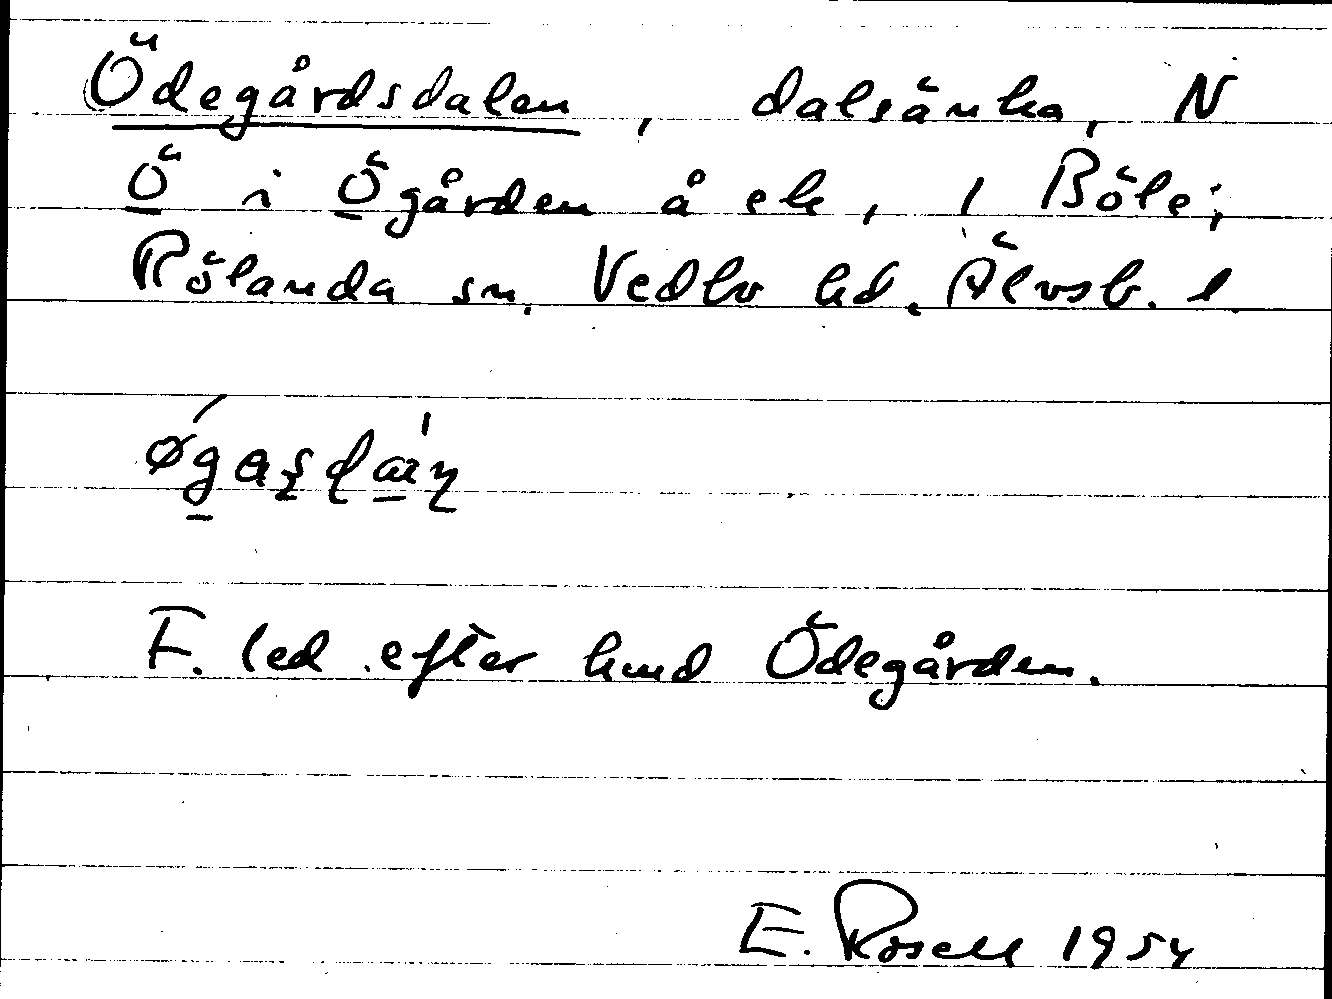 Ödegårdsdalen, dalsänka, N
Ö i Ögården å ek, 1 Böle;
Rölanda sn. Vedbo hd. Älvsb. l.
F. led efter hmd Ödegården.
E. Rosell 1954